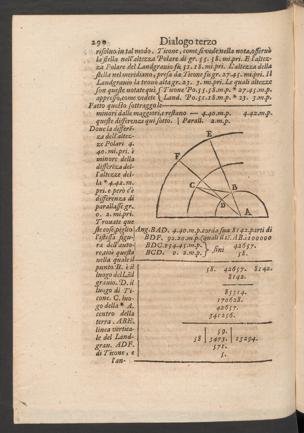 290 Dialogo terzo
risoluto in tal modo. Ticone, come si vede nella nota, osservò
la stella nell'altezza Polare di gr. 55. 58. mi. pri. E l'altez-
za Polare del Landgravio fù 51. 18. mi. pri. L'altezza della
stella nel meridiano, presa da Ticone fù gr. 27. 45. mi. pri. Il
Landgravio la trovò alta gr. 23. 3. mi. pri. Le quali altezze
son queste notate quì Ticone Po. 55. 58. m. p. * 27. 45. m. p.
appresso, come vedete Land. Po. 51. 18. m. p. * 23. 3. m. p.
Fatto questo sottraggo le
minori dalle maggiori, e restano — 4. 40. m. p. 4. 42. m. p.
queste differenze qui sotto. Parall. 2. m. p.
Dove la differẽ-
za dell'altez-
ze Polari 4.
40. mi. pri. è
minore della
differẽza del-
l'altezze del-
la * 4. 42. m.
pri. e però c'è
differenza di
paralasse gr.
0. 2. mi. pri.
Trovate que
ste cose, piglio
l'istessa figu-
ra dell'auto-
re, cioè questa
nella quale il
punto B. è il
luogo del Lãd
gravio. D. il
luogo di Ti-
cone. C. luo-
go della * A.
centro della
terra. ABE.
linea vertica-
le del Land-
gravio. ADF.
di Ticone, e
l'an-
E
F
C
D
B
A
Ang. BAD. 4. 40. m. p. corda sua 8142. parti di
BDF. 92. 20. m. p. quali il s. AB. è 100000
BDC. 154. 45. m. p. sini 42657.
BCD. 0. 2. m. p. 58.
58. 42657. 8142.
8142.
85314.
170628.
42657.
341256.
59.
58 | 3473. | 13294.
571.
5.